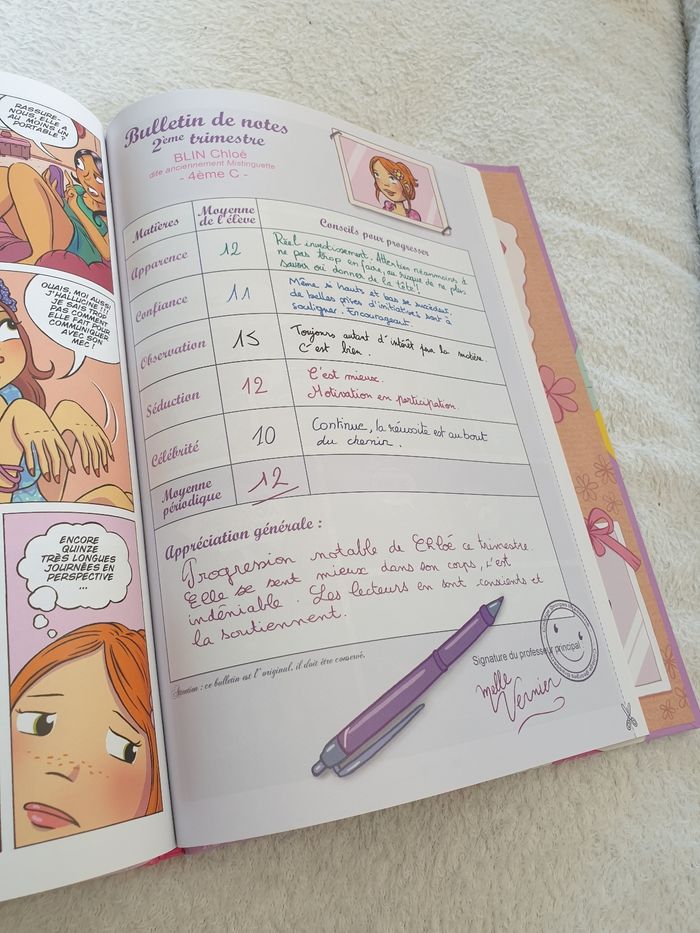 RASSURE-
NOUS, ELLE A
AU MOINS UN
PORTABLE ?
OUAIS, MOI AUSSI
J'HALLUCINE !!!
JE SAIS TROP
PAS COMMENT
ELLE FAIT POUR
COMMUNIQUER
AVEC SON
MEC !
ENCORE
QUINZE
TRÈS LONGUES
JOURNÉES EN
PERSPECTIVE
...
Bulletin de notes
2ème trimestre
BLIN Chloé
dite anciennement Mistinguette
- 4ème C -
Matières
Moyenne
de l'élève
Conseils pour progresser
Apparence
12
Réel investissement. Attention néanmoins à
ne pas trop en faire, au risque de ne plus
savoir où donner de la tête !
Confiance
11
Même si hauts et bas se succèdent,
de belles prises d'initiatives sont à
souligner. Encourageant.
Observation
15
Toujours autant d'intérêt pour la matière.
C'est bien.
Séduction
12
C'est mieux.
Motivation en participation.
Célébrité
10
Continue, la réussite est au bout
du chemin.
Moyenne
périodique
12
Appréciation générale :
Progression notable de Chloé ce trimestre
Elle se sent mieux dans son corps, c'est
indéniable. Les lecteurs en sont conscients et
la soutiennent.
Attention : ce bulletin est l'original, il doit être conservé.
Signature du professeur principal
Melle
Vernier